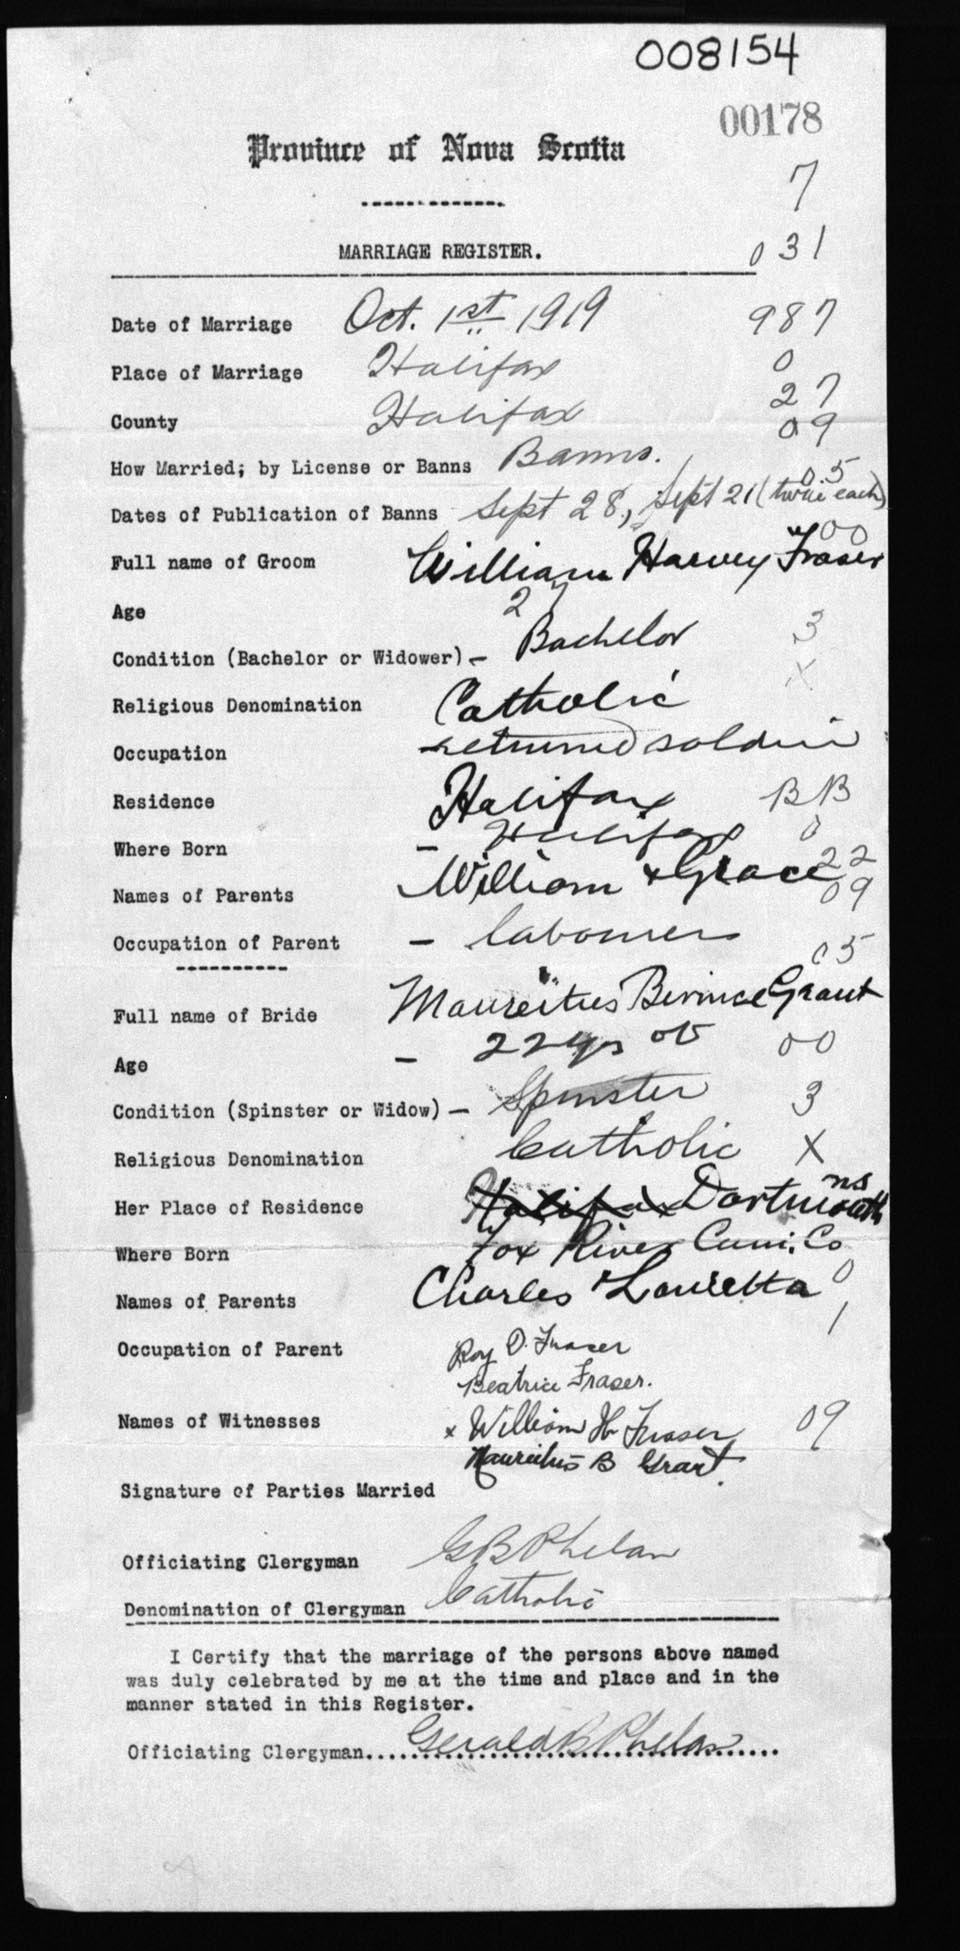 008154
00178
Province of Nova Scotia
7
MARRIAGE REGISTER. 031
Date of Marriage Oct. 1st 1919 987
Place of Marriage Halifax 0
27
County Halifax 09
How Married; by License or Banns Banns. 05
Dates of Publication of Banns Sept 28, Sept 21 (twice each)
00
Full name of Groom William Harvey Fraser
Age 27
Condition (Bachelor or Widower) - Bachelor 3
X
Religious Denomination Catholic
Occupation returned soldier
Residence Halifax BB
Where Born - Halifax 0
22
Names of Parents William & Grace 09
Occupation of Parent - labourer 05
Full name of Bride Maureitius Bernice Grant
Age - 22 yrs 00
Condition (Spinster or Widow) - Spinster 3
Religious Denomination Catholic X
Her Place of Residence Halifax Dartmouth ns
Where Born Fox River Cum. Co
Names of Parents Charles & Lauretta 0
1
Occupation of Parent Roy D. Fraser
Beatrice Fraser.
Names of Witnesses x William H Fraser 09
Maureitius B Grant.
Signature of Parties Married
Officiating Clergyman G B Phelan
Denomination of Clergyman Catholic
I Certify that the marriage of the persons above named
was duly celebrated by me at the time and place and in the
manner stated in this Register.
Officiating Clergyman....Gerald B Phelan....